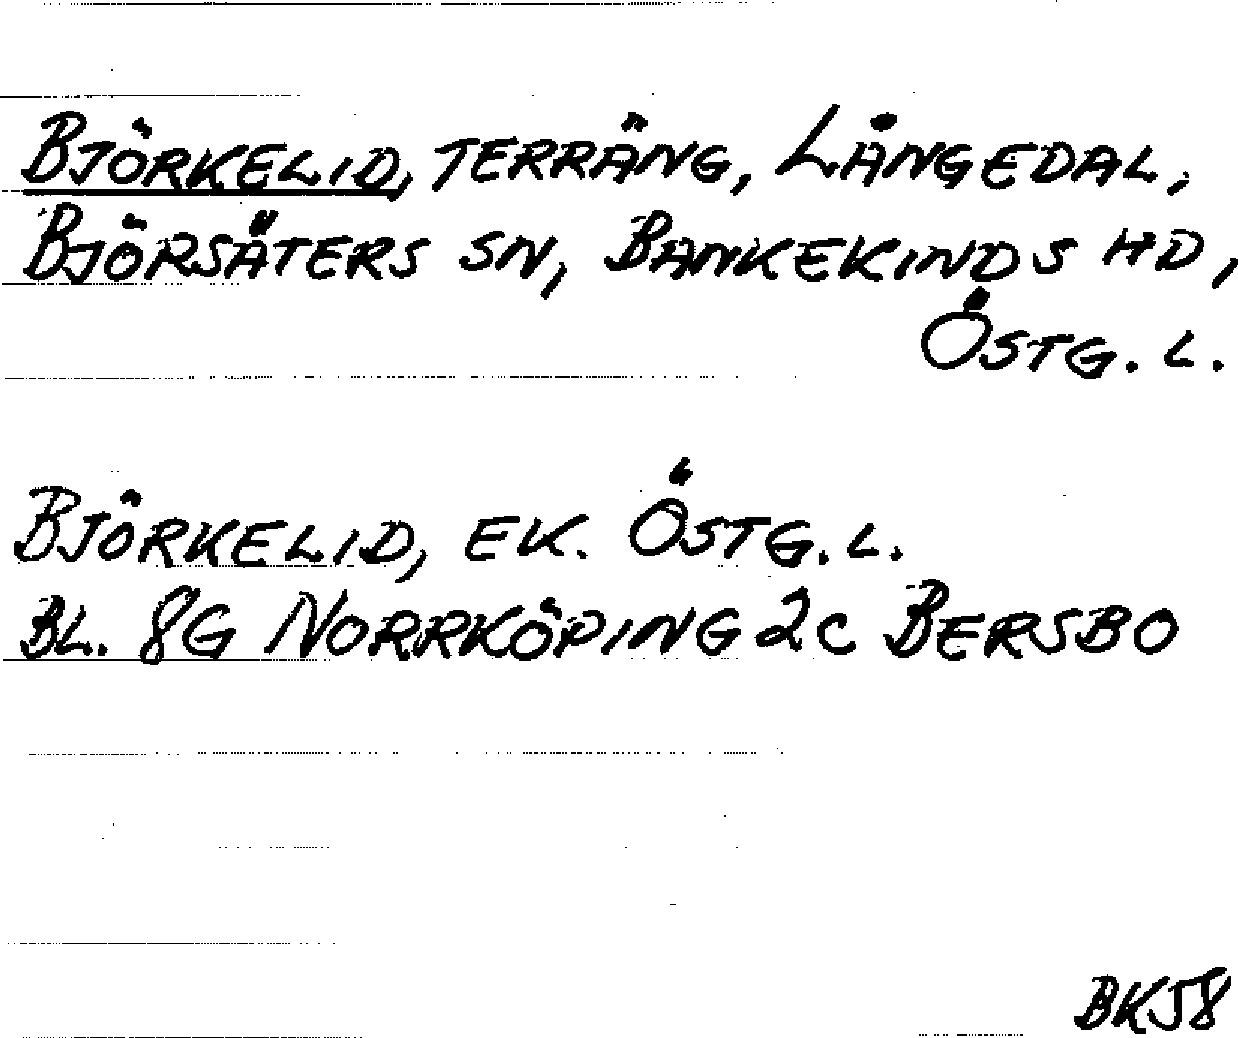 BJÖRKELID, TERRÄNG, LÅNGEDAL,
BJÖRSÄTERS SN, BANKEKINDS HD,
ÖSTG. L.
BJÖRKELID, EK. ÖSTG. L.
BL. 8G NORRKÖPING 2C BERSBO
BK58